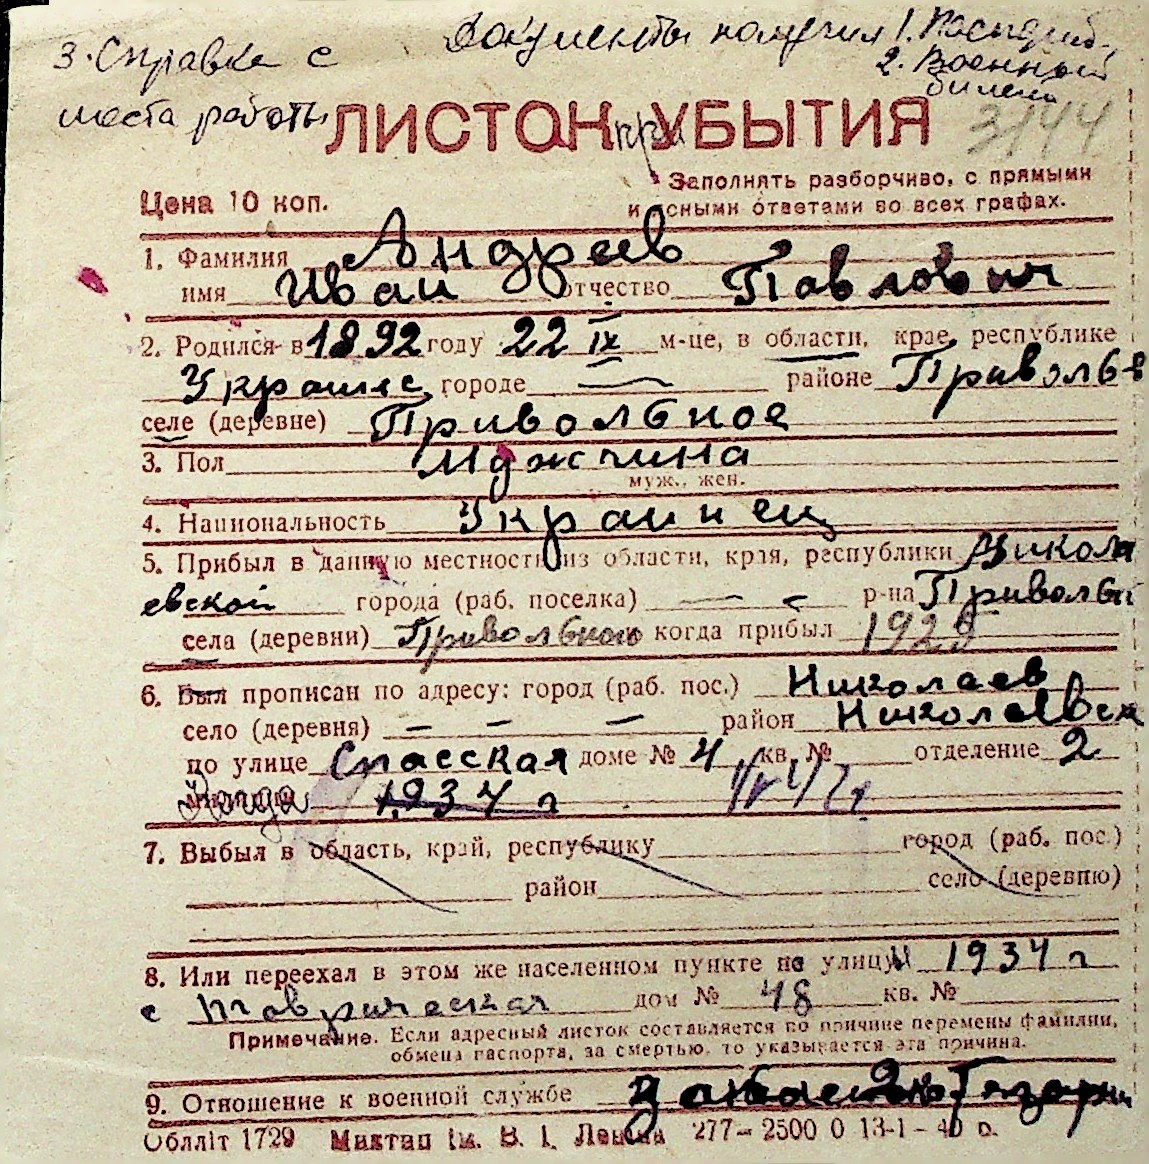 Документы получил 1. Паспорт.
3. Справка с 2. Военный
билет
места работы
ЛИСТОК УБЫТИЯ
3/44
Цена 10 коп. Заполнять разборчиво, с прямыми
и ясными ответами во всех графах.
1. Фамилия Андреев
имя Иван отчество Павлович
2. Родился в 1892 году 22 IX м-це, в области, крае, республике
Украине городе — районе Привольн
селе (деревне) Привольное
3. Пол Мджчина
муж., жен.
4. Национальность Украинец
5. Прибыл в данную местность из области, края, республики Никола
евской города (раб. поселка) — — р-на Привольн
села (деревни) Привольною когда прибыл
6. Был прописан по адресу: город (раб. пос.) Николаев
село (деревня) — — — район Николаевск
по улице Спасская доме № 4 кв. № отделение 2
1934 г
7. Выбыл в область, край, республику город (раб. пос.)
район село (деревню)
8. Или переехал в этом же населенном пункте на улицу 1934 г
с Таврическая дом № 48 кв. №
Примечание. Если адресный листок составляется по причине перемены фамилии,
обмена паспорта, за смертью, то указывается эта причина.
9. Отношение к военной службе
Облліт 1729 Миктап ім. В. І. Леніна 277–2500 0 13-1-40 р.